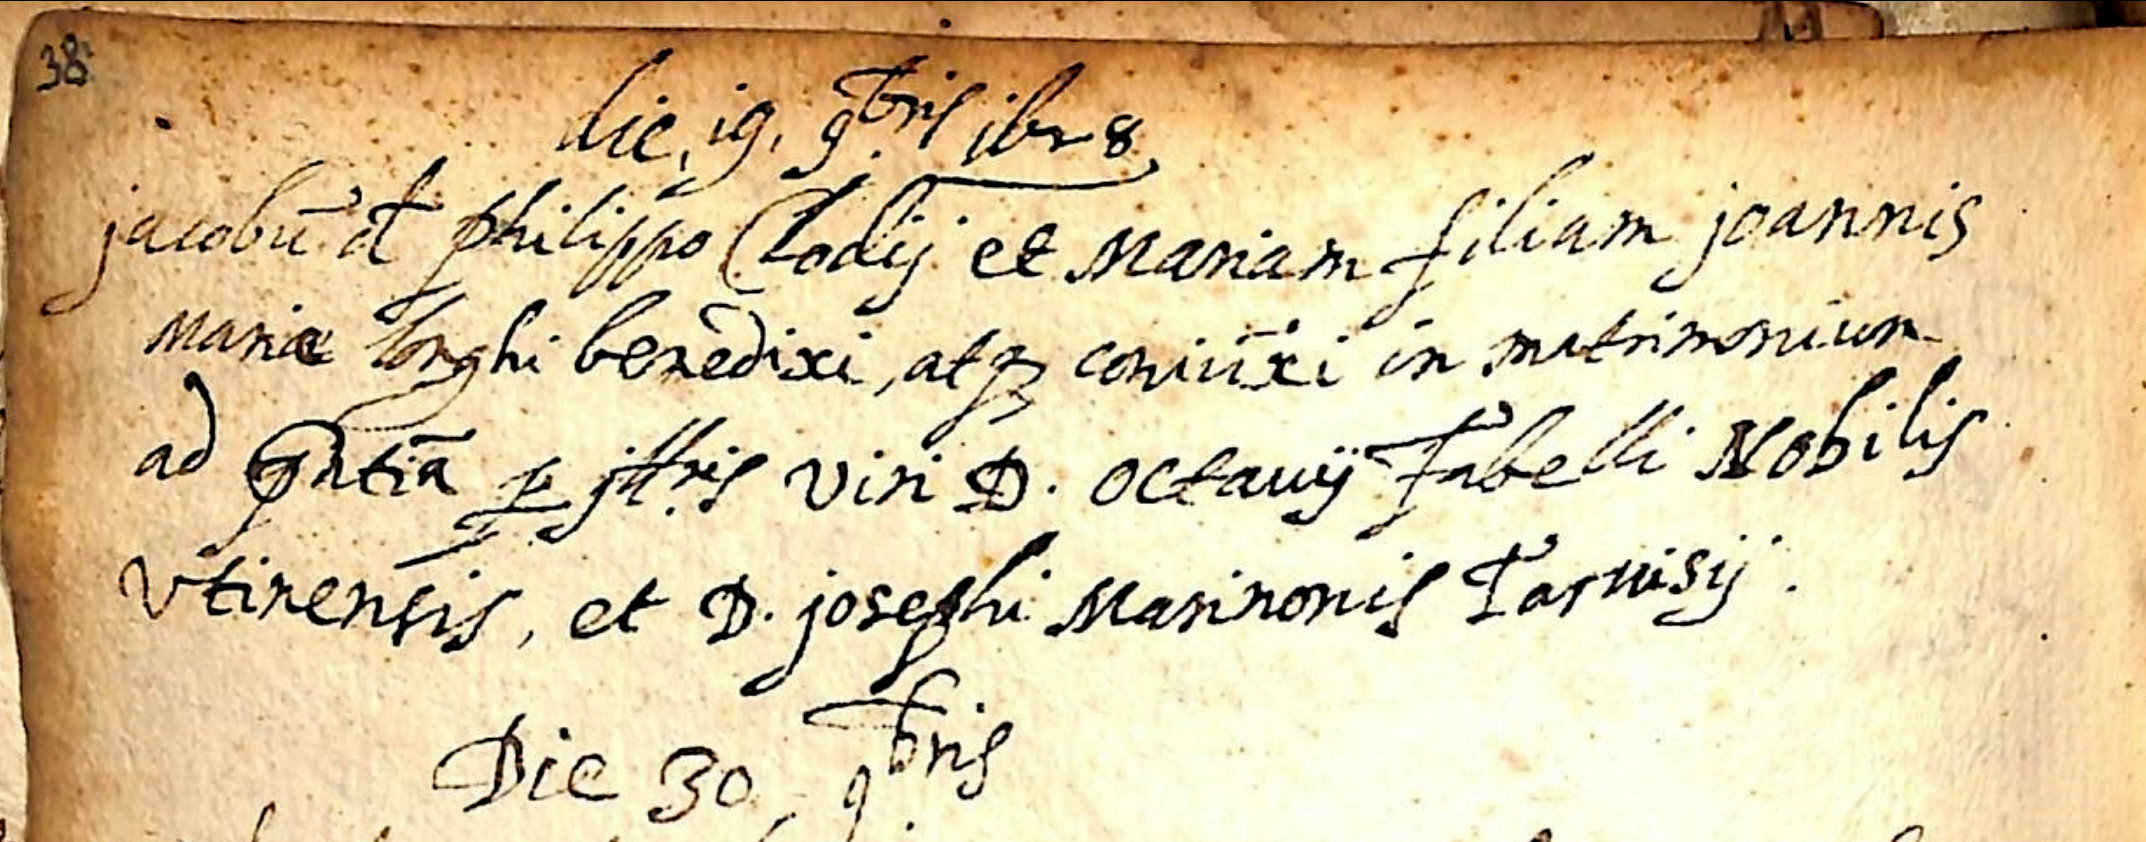 38
die, 19, 9bris 1628
jacobū d philippo Clodij et Mariam filiam joannis
Mariæ longhi benēdixi, atq3 coniūxi in matrimonium
ad pntiā Viri D. octavij Fabelli Nobilis
Vtinensis, et D. josephi Marinonis Taruisij.
Die 30 9bris